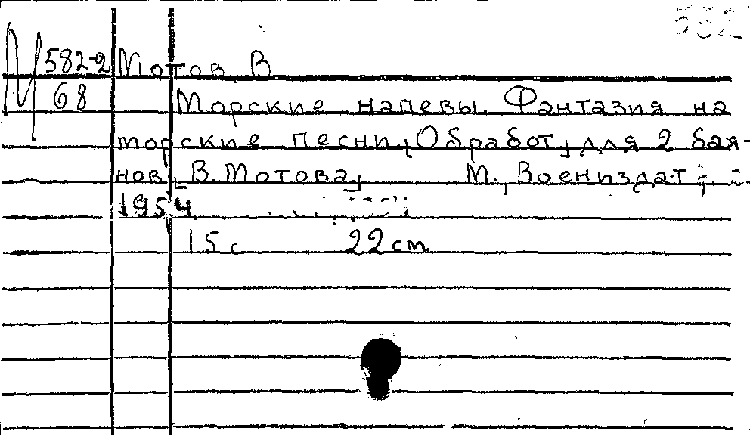 582
М 582-2 Мотов В
68 Морские напевы. Фантазия на
морские песни, Обработ, для 2 бая-
нов, В. Мотова, М., Воениздат,
1954
15 с 22 cm